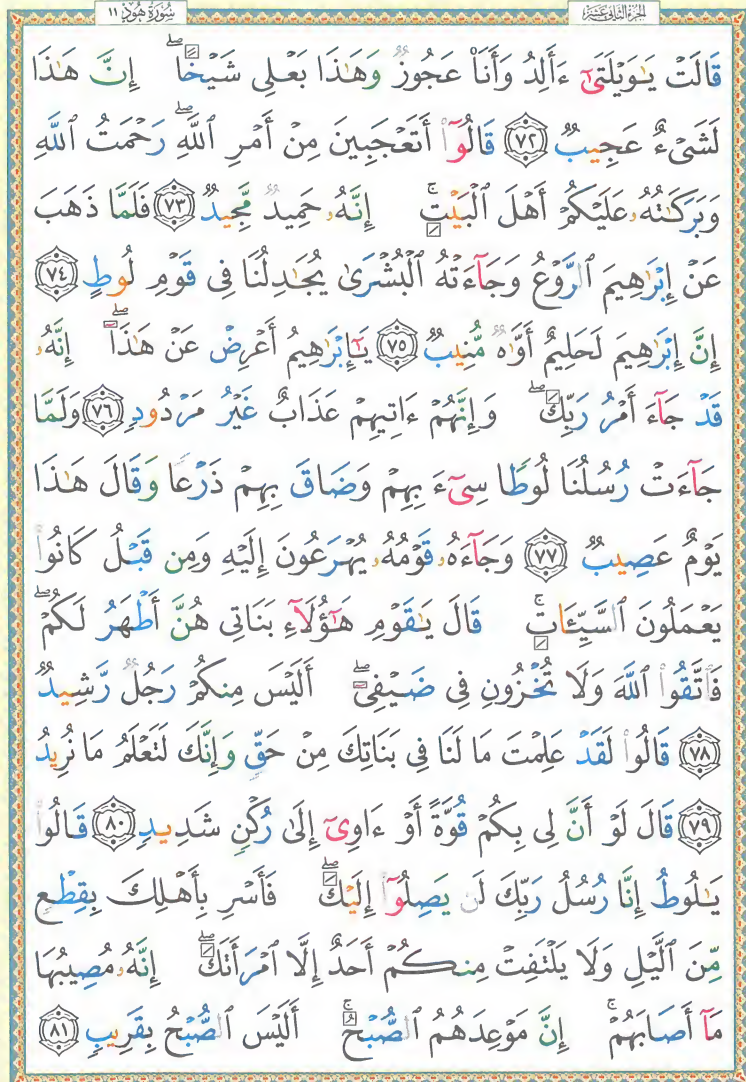 سُورَةُ هُودٍ ١١
الجزء الثاني عشر
قَالَتْ يَـٰوَيْلَتَىٰٓ ءَأَلِدُ وَأَنَا۠ عَجُوزٌ وَهَـٰذَا بَعْلِى شَيْخًا ۖ إِنَّ هَـٰذَا
لَشَىْءٌ عَجِيبٌ ﴿٧٢﴾ قَالُوٓا۟ أَتَعْجَبِينَ مِنْ أَمْرِ ٱللَّهِ ۖ رَحْمَتُ ٱللَّهِ
وَبَرَكَـٰتُهُۥ عَلَيْكُمْ أَهْلَ ٱلْبَيْتِ ۚ إِنَّهُۥ حَمِيدٌ مَّجِيدٌ ﴿٧٣﴾ فَلَمَّا ذَهَبَ
عَنْ إِبْرَٰهِيمَ ٱلرَّوْعُ وَجَآءَتْهُ ٱلْبُشْرَىٰ يُجَـٰدِلُنَا فِى قَوْمِ لُوطٍ ﴿٧٤﴾
إِنَّ إِبْرَٰهِيمَ لَحَلِيمٌ أَوَّٰهٌ مُّنِيبٌ ﴿٧٥﴾ يَـٰٓإِبْرَٰهِيمُ أَعْرِضْ عَنْ هَـٰذَآ ۖ إِنَّهُۥ
قَدْ جَآءَ أَمْرُ رَبِّكَ ۖ وَإِنَّهُمْ ءَاتِيهِمْ عَذَابٌ غَيْرُ مَرْدُودٍ ﴿٧٦﴾ وَلَمَّا
جَآءَتْ رُسُلُنَا لُوطًا سِىٓءَ بِهِمْ وَضَاقَ بِهِمْ ذَرْعًا وَقَالَ هَـٰذَا
يَوْمٌ عَصِيبٌ ﴿٧٧﴾ وَجَآءَهُۥ قَوْمُهُۥ يُهْرَعُونَ إِلَيْهِ وَمِن قَبْلُ كَانُوا۟
يَعْمَلُونَ ٱلسَّيِّـَٔاتِ ۚ قَالَ يَـٰقَوْمِ هَـٰٓؤُلَآءِ بَنَاتِى هُنَّ أَطْهَرُ لَكُمْ ۖ
فَٱتَّقُوا۟ ٱللَّهَ وَلَا تُخْزُونِ فِى ضَيْفِىٓ ۖ أَلَيْسَ مِنكُمْ رَجُلٌ رَّشِيدٌ
﴿٧٨﴾ قَالُوا۟ لَقَدْ عَلِمْتَ مَا لَنَا فِى بَنَاتِكَ مِنْ حَقٍّ وَإِنَّكَ لَتَعْلَمُ مَا نُرِيدُ
﴿٧٩﴾ قَالَ لَوْ أَنَّ لِى بِكُمْ قُوَّةً أَوْ ءَاوِىٓ إِلَىٰ رُكْنٍ شَدِيدٍ ﴿٨٠﴾ قَالُوا۟
يَـٰلُوطُ إِنَّا رُسُلُ رَبِّكَ لَن يَصِلُوٓا۟ إِلَيْكَ ۖ فَأَسْرِ بِأَهْلِكَ بِقِطْعٍ
مِّنَ ٱلَّيْلِ وَلَا يَلْتَفِتْ مِنكُمْ أَحَدٌ إِلَّا ٱمْرَأَتَكَ ۖ إِنَّهُۥ مُصِيبُهَا
مَآ أَصَابَهُمْ ۚ إِنَّ مَوْعِدَهُمُ ٱلصُّبْحُ ۚ أَلَيْسَ ٱلصُّبْحُ بِقَرِيبٍ ﴿٨١﴾